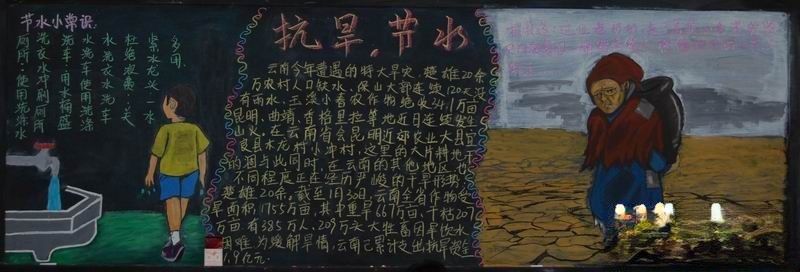 节水小常识:
厕所:使用洗涤水
洗衣水冲刷厕所
洗车:用水桶盛
水洗车使用洗涤
水、洗衣水洗车
杜绝浪费:天
紧水龙头一水
多用.
抗旱,节水
云南今年遭遇的特大旱灾,楚雄20余
万农村人口饮水,保山大部连续120天没
有雨水,玉溪小春农作物绝收34.1万亩
昆明、曲靖、香格里拉等地近日连续发生
山火。在云南省会昆明近郊农业大县宜
良县木龙村小井村,这里的大片耕地干
的涸与此同时,在云南的其他地区也
不同程度正在经历严峻的干旱形势,
楚雄20余。截至1月30日,云南全省作物受
旱面积1755万亩,其中重旱667万亩,干枯207
万亩有385万人、209万头大牲畜因旱饮水
困难。为缓解旱情,云南已累计支出抗旱资金
1.9亿元.